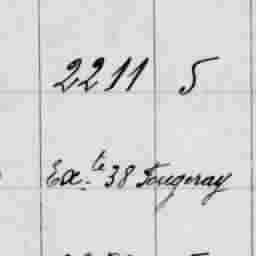 2211 5
Ex.te 38 Fougeray